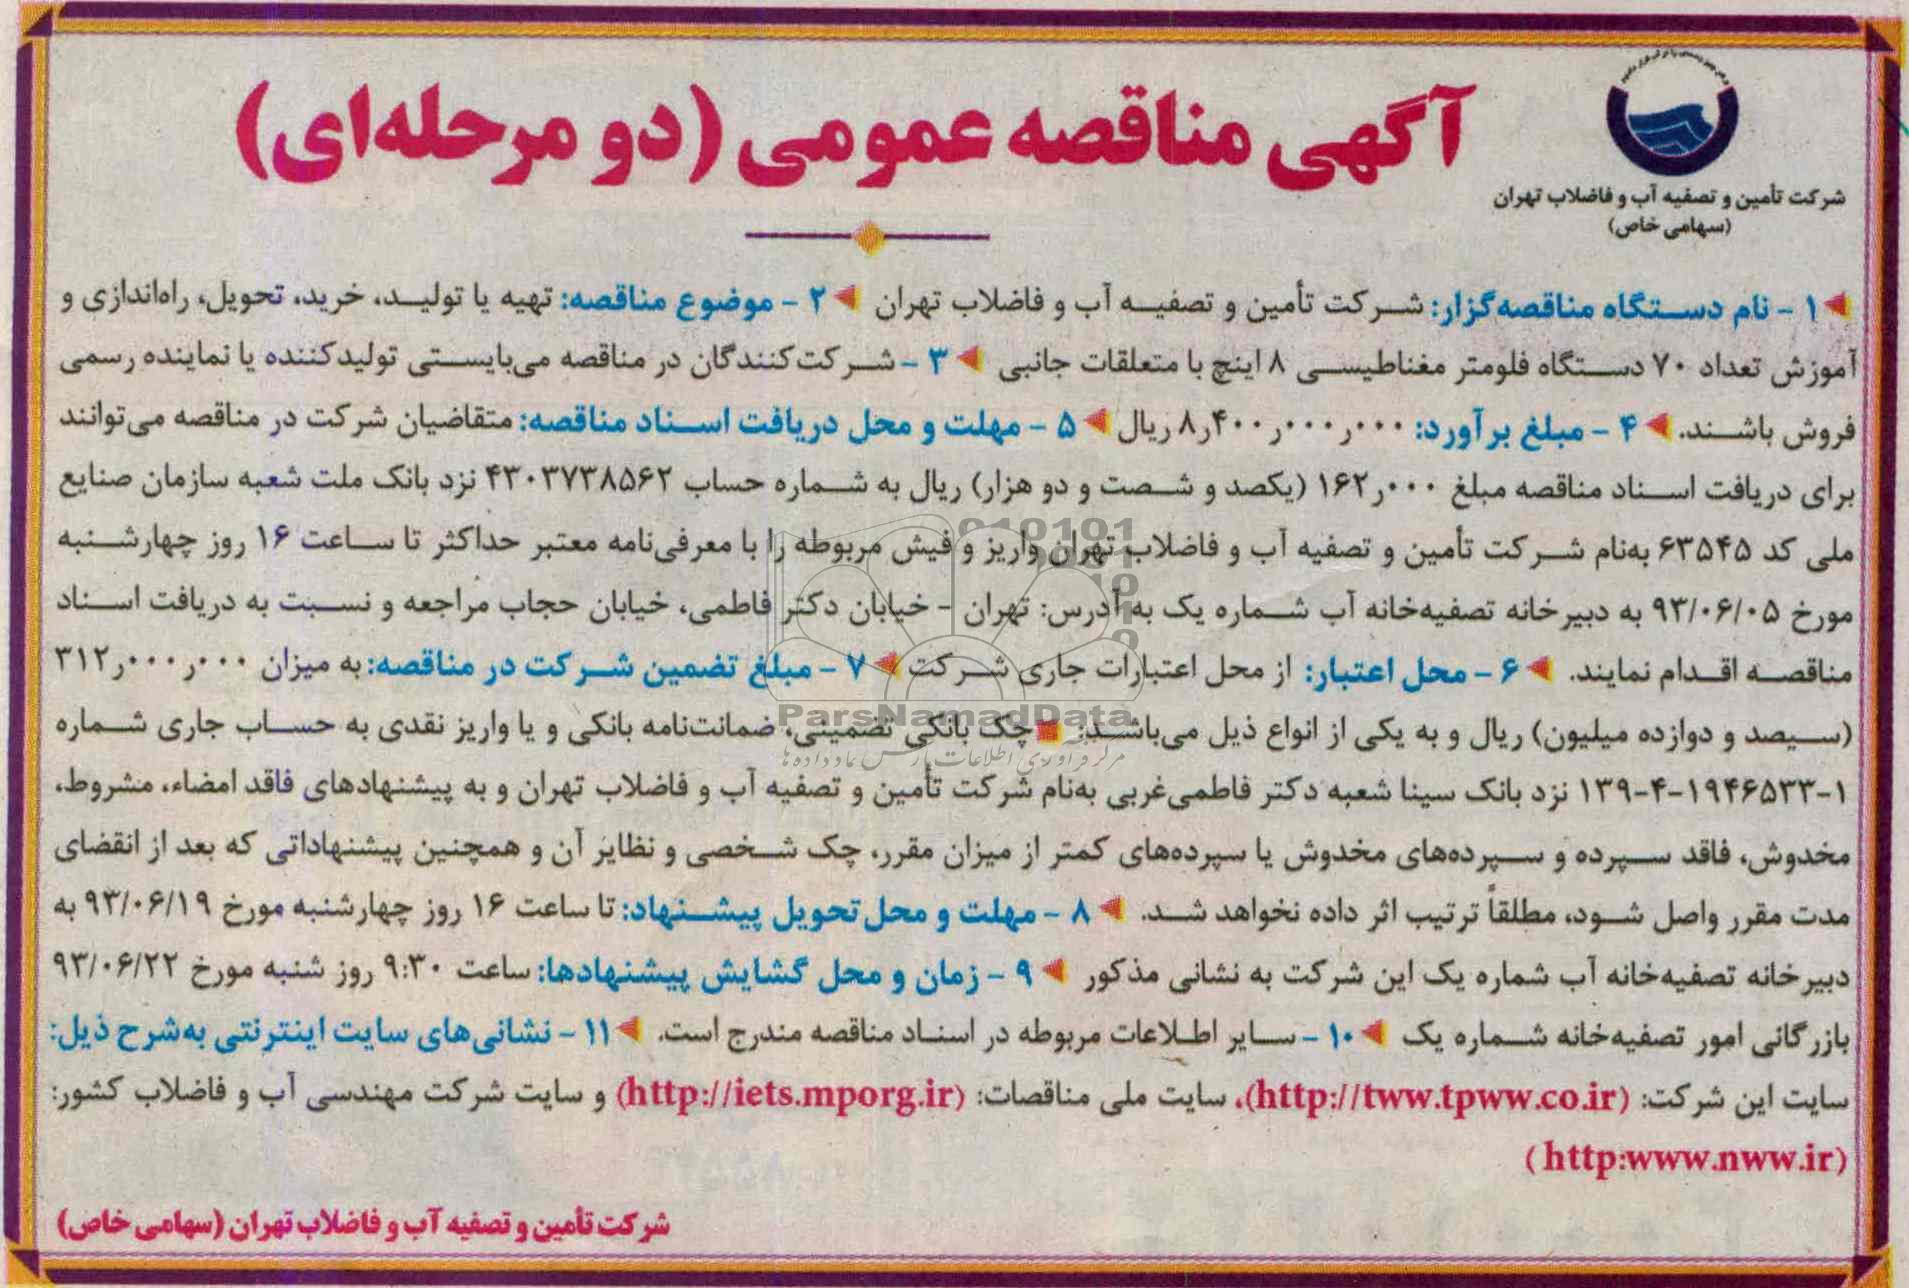 آگهی مناقصه عمومی (دو مرحله‌ای)
شرکت تأمین و تصفیه آب و فاضلاب تهران
(سهامی خاص)
۱ - نام دستگاه مناقصه‌گزار: شرکت تأمین و تصفیه آب و فاضلاب تهران ۲ - موضوع مناقصه: تهیه یا تولید، خرید، تحویل، راه‌اندازی و
آموزش تعداد ۷۰ دستگاه فلومتر مغناطیسی ۸ اینچ با متعلقات جانبی ۳ - شرکت‌کنندگان در مناقصه می‌بایستی تولیدکننده یا نماینده رسمی
فروش باشند. ۴ - مبلغ برآورد: ۸٫۴۰۰٫۰۰۰٫۰۰۰ ریال ۵ - مهلت و محل دریافت اسناد مناقصه: متقاضیان شرکت در مناقصه می‌توانند
برای دریافت اسناد مناقصه مبلغ ۱۶۲٫۰۰۰ (یکصد و شصت و دو هزار) ریال به شماره حساب ۴۳۰۳۷۳۸۵۶۲ نزد بانک ملت شعبه سازمان صنایع
ملی کد ۶۳۵۴۵ به‌نام شرکت تأمین و تصفیه آب و فاضلاب تهران واریز و فیش مربوطه را با معرفی‌نامه معتبر حداکثر تا ساعت ۱۶ روز چهارشنبه
مورخ ۹۳/۰۶/۰۵ به دبیرخانه تصفیه‌خانه آب شماره یک به آدرس: تهران - خیابان دکتر فاطمی، خیابان حجاب مراجعه و نسبت به دریافت اسناد
مناقصه اقدام نمایند. ۶ - محل اعتبار: از محل اعتبارات جاری شرکت ۷ - مبلغ تضمین شرکت در مناقصه: به میزان ۳۱۲٫۰۰۰٫۰۰۰
(سیصد و دوازده میلیون) ریال و به یکی از انواع ذیل می‌باشد: چک بانکی تضمینی، ضمانت‌نامه بانکی و یا واریز نقدی به حساب جاری شماره
۱۳۹-۴-۱۹۴۶۵۳۳-۱ نزد بانک سینا شعبه دکتر فاطمی‌غربی به‌نام شرکت تأمین و تصفیه آب و فاضلاب تهران و به پیشنهادهای فاقد امضاء، مشروط،
مخدوش، فاقد سپرده و سپرده‌های مخدوش یا سپرده‌های کمتر از میزان مقرر، چک شخصی و نظایر آن و همچنین پیشنهاداتی که بعد از انقضای
مدت مقرر واصل شود، مطلقاً ترتیب اثر داده نخواهد شد. ۸ - مهلت و محل تحویل پیشنهاد: تا ساعت ۱۶ روز چهارشنبه مورخ ۹۳/۰۶/۱۹ به
دبیرخانه تصفیه‌خانه آب شماره یک این شرکت به نشانی مذکور ۹ - زمان و محل گشایش پیشنهادها: ساعت ۹:۳۰ روز شنبه مورخ ۹۳/۰۶/۲۲
بازرگانی امور تصفیه‌خانه شماره یک ۱۰ - سایر اطلاعات مربوطه در اسناد مناقصه مندرج است. ۱۱ - نشانی‌های سایت اینترنتی به‌شرح ذیل:
سایت این شرکت: (http://tww.tpww.co.ir)، سایت ملی مناقصات: (http://iets.mporg.ir) و سایت شرکت مهندسی آب و فاضلاب کشور:
(http:www.nww.ir)
شرکت تأمین و تصفیه آب و فاضلاب تهران (سهامی خاص)
ParsNamadData